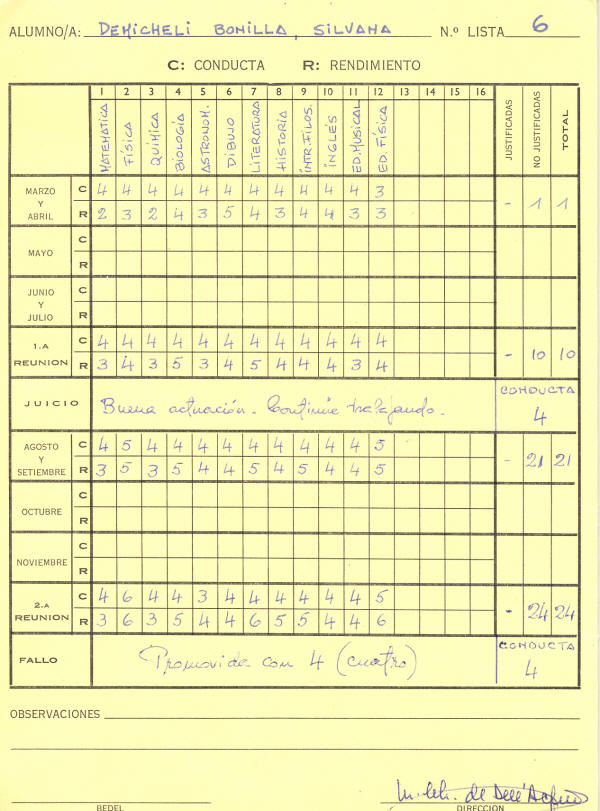 ALUMNO/A: DEMICHELI BONILLA, SILVANA N.º LISTA 6
C: CONDUCTA R: RENDIMIENTO
1 2 3 4 5 6 7 8 9 10 11 12 13 14 15 16
MATEMATICA FÍSICA QUÍMICA BIOLOGÍA ASTRONOM. DIBUJO LITERATURA HISTORIA INTR.FILOS. INGLÉS ED.MUSICAL ED. FÍSICA JUSTIFICADAS NO JUSTIFICADAS TOTAL
MARZO Y ABRIL
C 4 4 4 4 4 4 4 4 4 4 4 3
R 2 3 2 4 3 5 4 3 4 4 3 3
- 1 1
MAYO
C
R
JUNIO Y JULIO
C
R
1.A REUNION
C 4 4 4 4 4 4 4 4 4 4 4 4
R 3 4 3 5 3 4 5 4 4 4 3 4
- 10 10
JUICIO Buena actuación. Continúe trabajando. CONDUCTA
4
AGOSTO Y SETIEMBRE
C 4 5 4 4 4 4 4 4 4 4 4 5
R 3 5 3 5 4 4 5 4 5 4 4 5
- 21 21
OCTUBRE
C
R
NOVIEMBRE
C
R
2.A REUNION
C 4 6 4 4 3 4 4 4 4 4 4 5
R 3 6 3 5 4 4 6 5 5 4 4 6
- 24 24
FALLO Promovida con 4 (cuatro) CONDUCTA
4
OBSERVACIONES
BEDEL DIRECCION